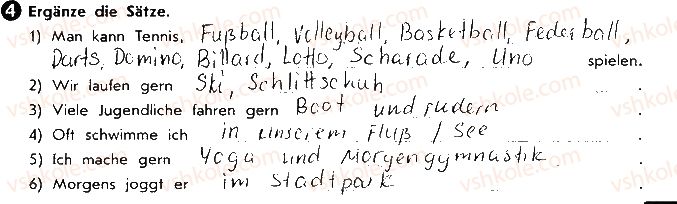 4 Ergänze die Sätze.
1) Man kann Tennis, Fußball, Volleyball, Basketball, Federball,
Darts, Domino, Billard, Lotto, Scharade, Uno spielen.
2) Wir laufen gern Ski, Schlittschuh .
3) Viele Jugendliche fahren gern Boot und rudern .
4) Oft schwimme ich in unserem Fluß / See .
5) Ich mache gern Yoga und Morgengymnastik .
6) Morgens joggt er im Stadtpark .
vshkole.com